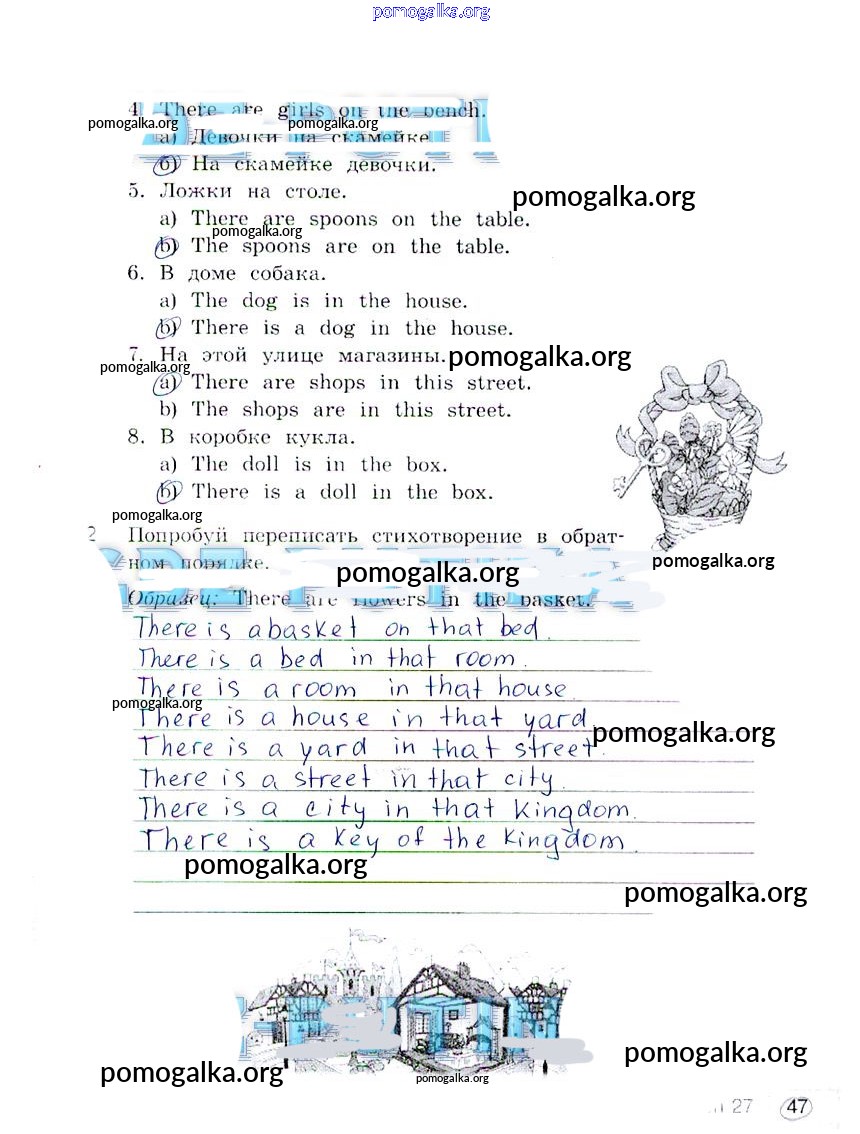 pomogalka.org
4. There are girls on the bench.
pomogalka.org pomogalka.org
а) Девочки на скамейке.
б) На скамейке девочки.
5. Ложки на столе.
pomogalka.org
a) There are spoons on the table.
pomogalka.org
b) The spoons are on the table.
6. В доме собака.
a) The dog is in the house.
b) There is a dog in the house.
7. На этой улице магазины.
pomogalka.org
pomogalka.org
a) There are shops in this street.
b) The shops are in this street.
8. В коробке кукла.
a) The doll is in the box.
b) There is a doll in the box.
pomogalka.org
2 Попробуй переписать стихотворение в обрат-
ном порядке.
pomogalka.org
pomogalka.org
Образец: There are flowers in the basket.
There is a basket on that bed.
There is a bed in that room.
There is a room in that house.
pomogalka.org
There is a house in that yard.
pomogalka.org
There is a yard in that street.
There is a street in that city.
There is a city in that kingdom.
There is a key of the kingdom.
pomogalka.org
pomogalka.org
pomogalka.org
pomogalka.org
pomogalka.org
27 47